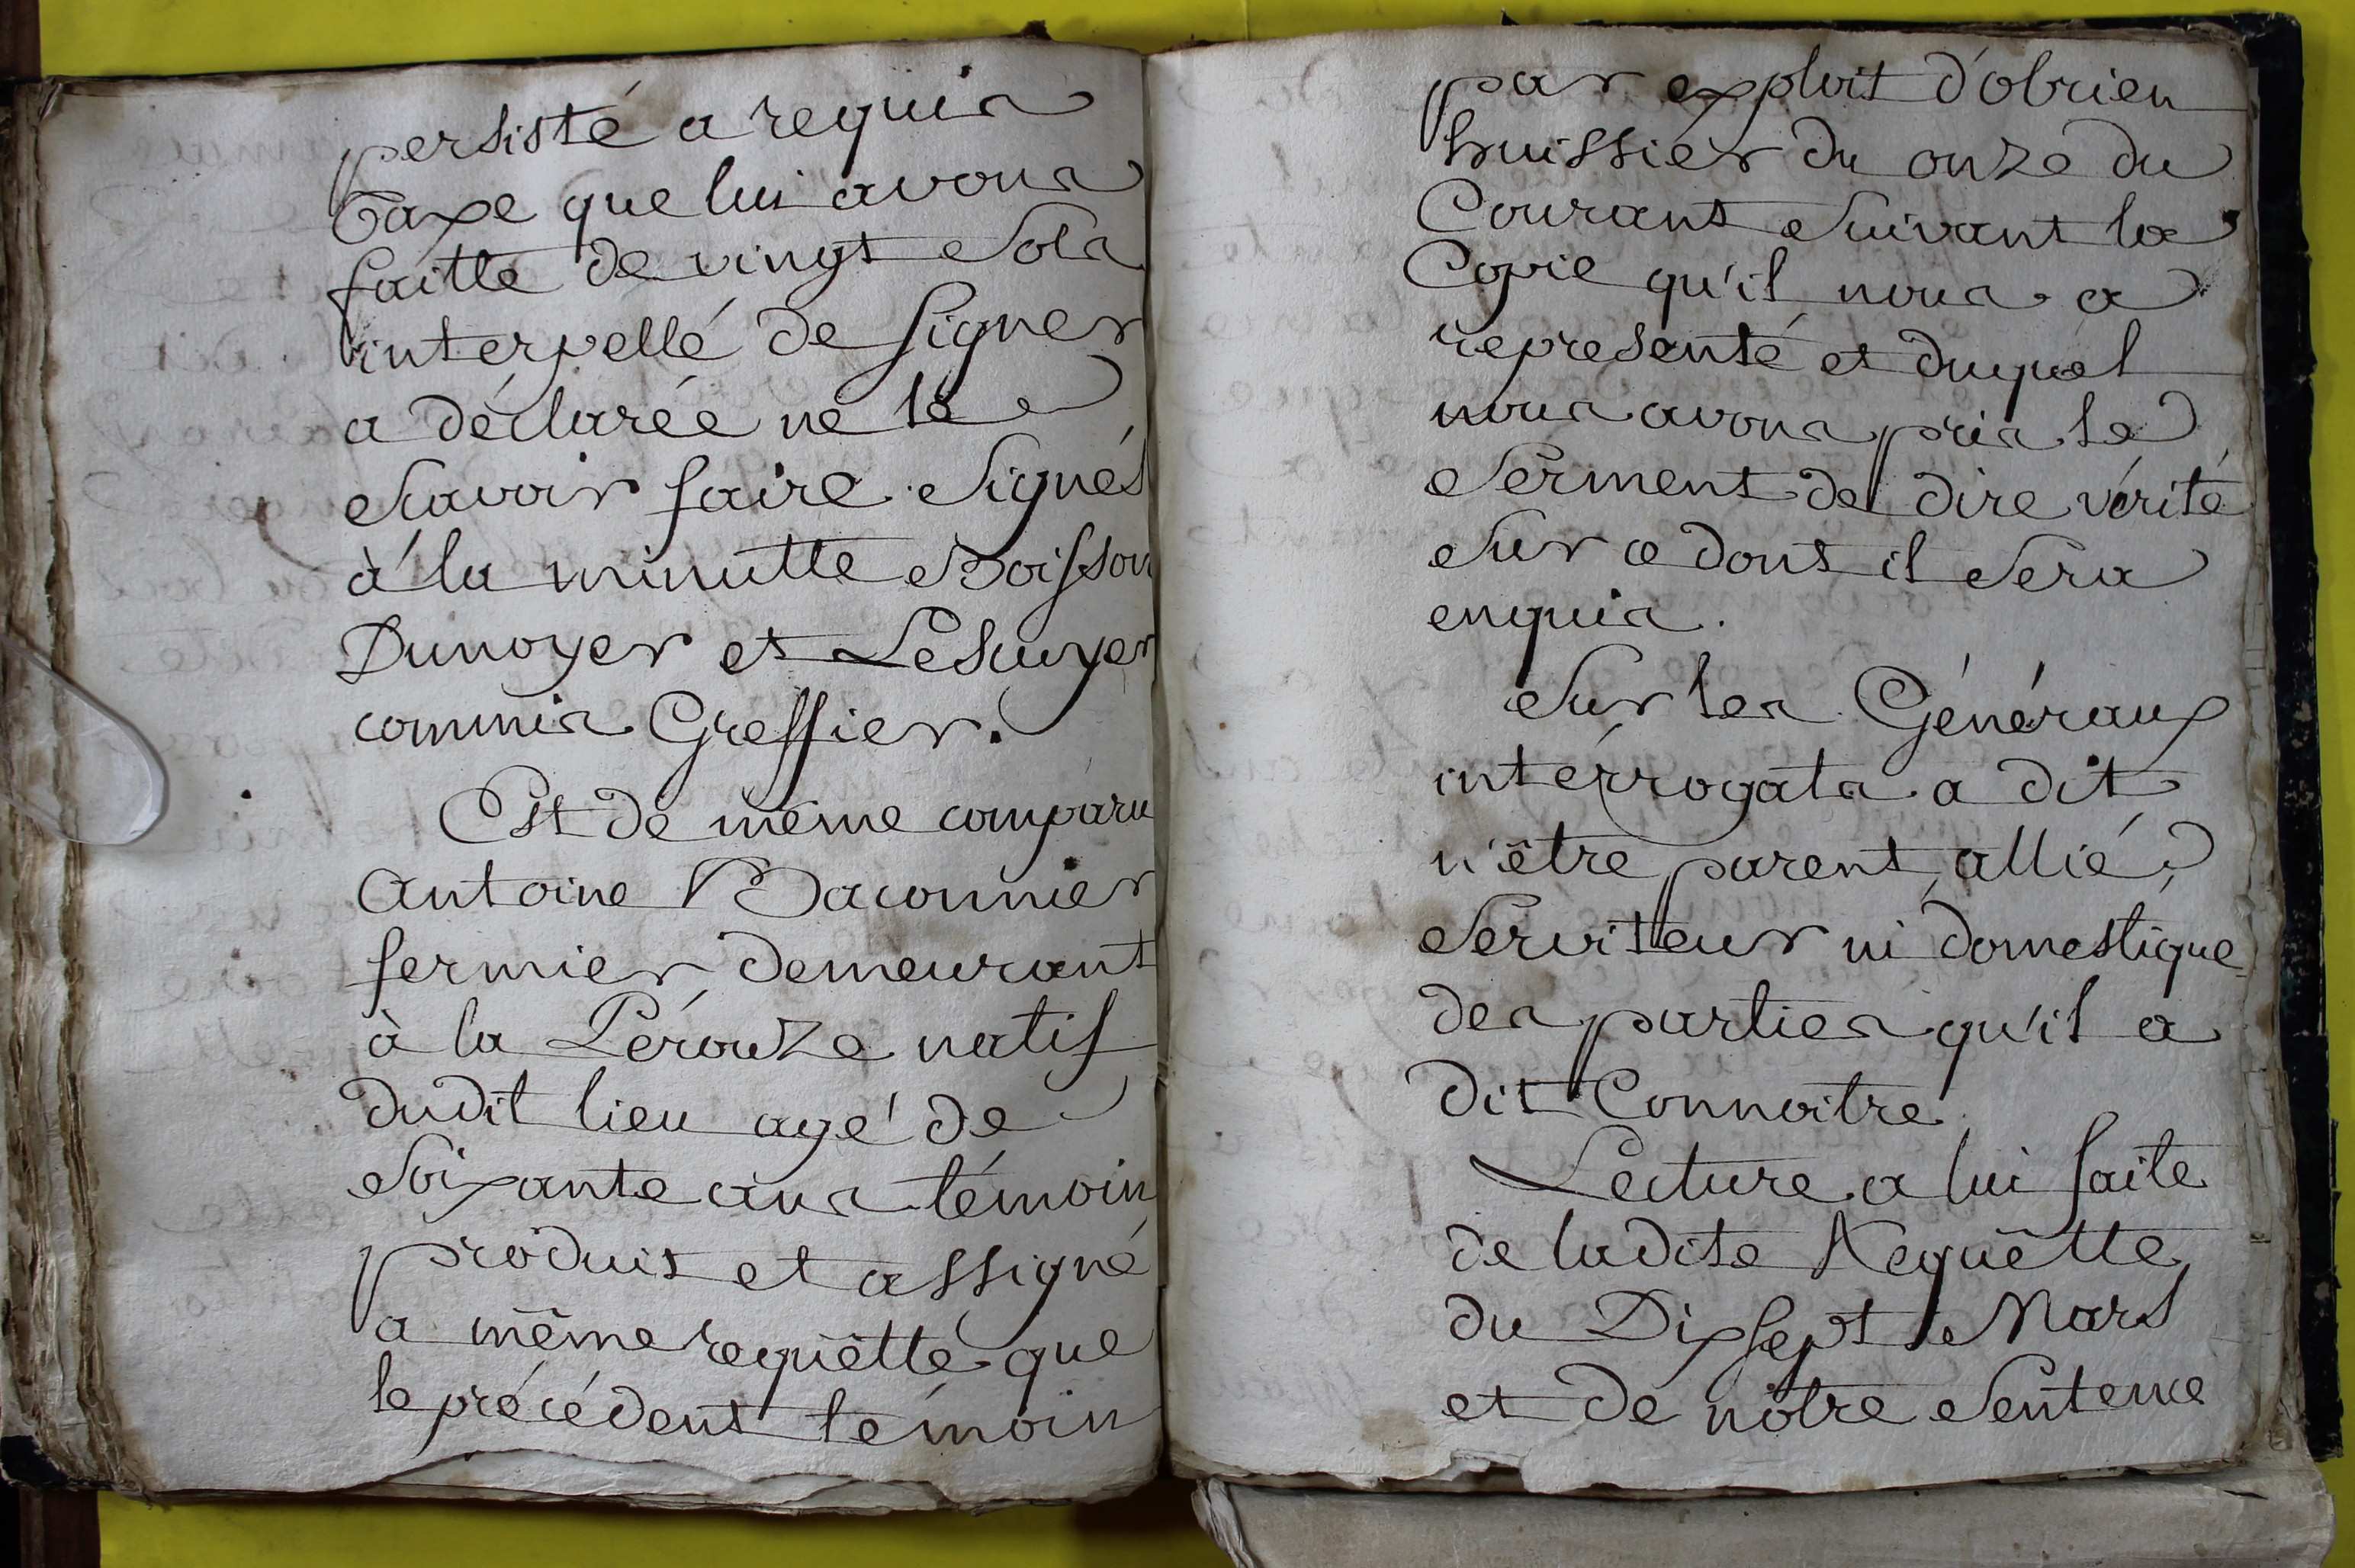 persisté a requis
Taxe que lui avons
faitte de vingt Sols
interpellé de signer
a déclarée ne le
Scavoir faire Signés
à la minutte Boisson
Dunoyer et Lescuyer
commis Greffier.
Est de même comparu
Antoine Baconnier
fermier demeurant
à la Pérouze natif
dudit lieu agé de
Soixante ans témoin
produit et assigné
a même requêtte que
le précédent témoin
par exploit d'obrien
huissier du onze du
Courant Suivant la
Copie qu'il nous a
representé et duquel
nous avons pris le
Serment de dire vérité
Sur ce dont il Sera
enquis.
Sur les Généraux
intérrogats a dit
n'être parent, allié,
Serviteur ni domestique
des parties qu'il a
dit Connoitre
Lecture a lui faite
de ladite Requêtte
du Dixsept Mars
et de nôtre Sentence